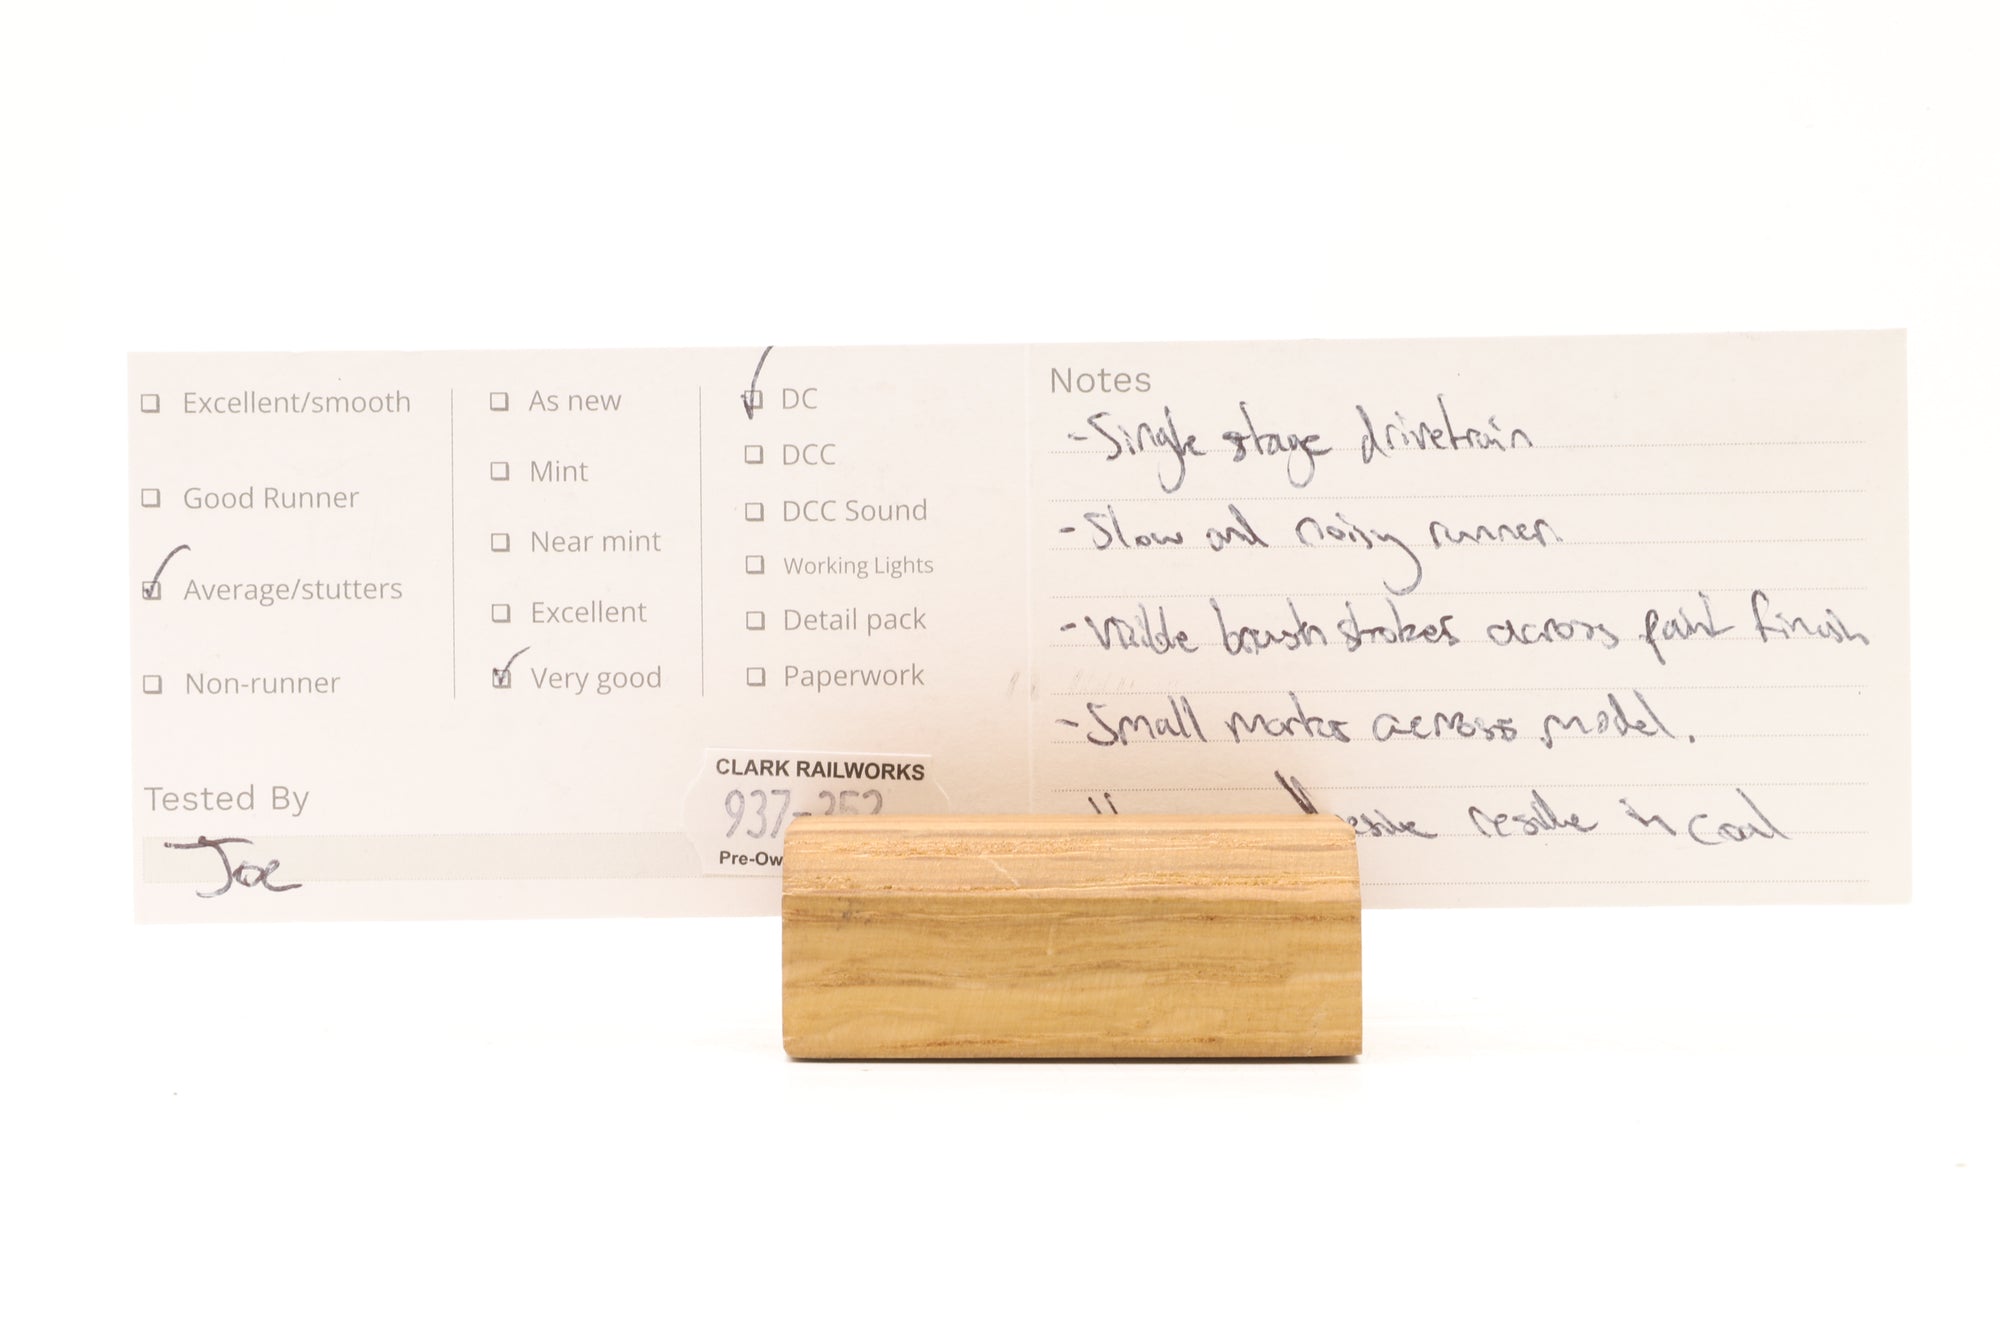 Excellent/smooth
Good Runner
Average/stutters
Non-runner
As new
Mint
Near mint
Excellent
Very good
DC
DCC
DCC Sound
Working Lights
Detail pack
Paperwork
Tested By
Joe
CLARK RAILWORKS
937-352
Notes
-Single stage drivetrain
-Slow and noisy runner.
-Visible brush strokes across paint finish
-Small marks across model.
residue in coal